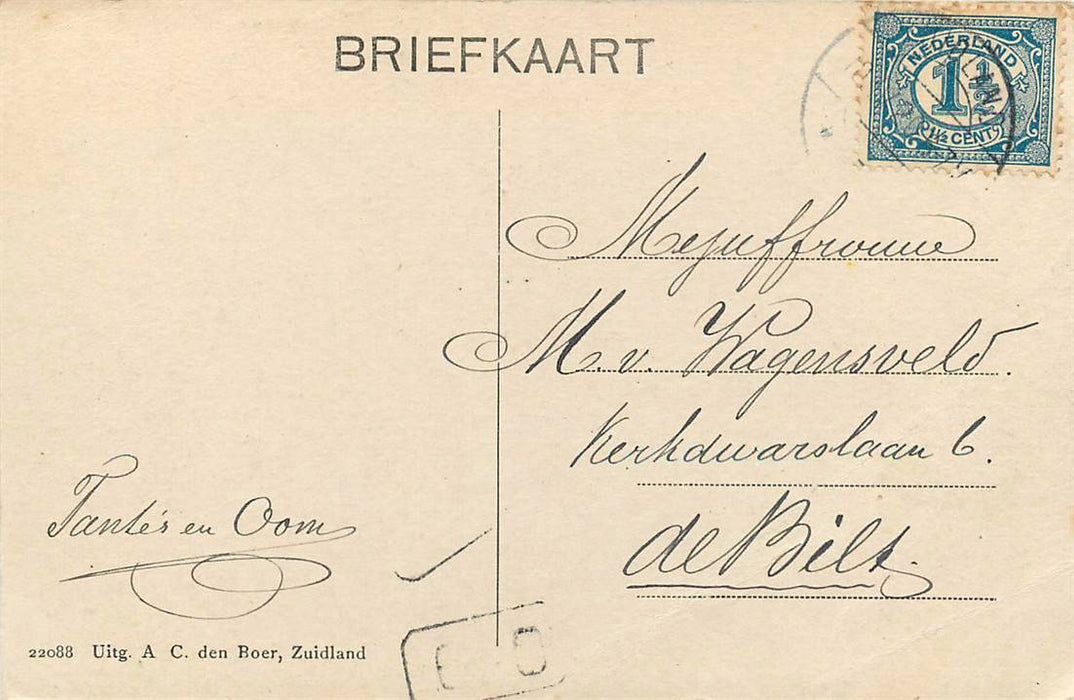 BRIEFKAART
NEDERLAND
1½
1½ CENT
Mejuffrouw
M. v. Wagensveld.
Kerkdwarslaan 6.
de Bilt.
Tante's en Oom
22088 Uitg. A C. den Boer, Zuidland